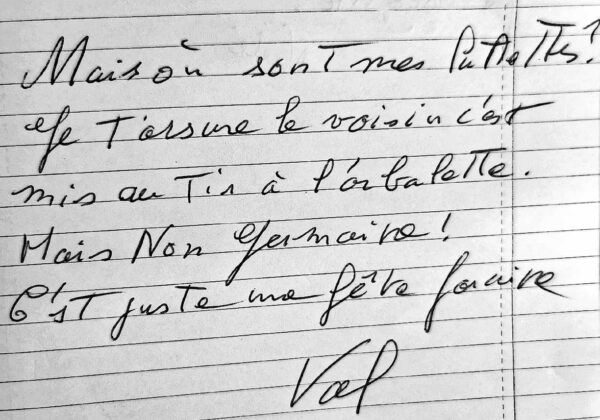 Mais où sont mes lunettes?
Je t'assure le voisin c'est
mis au tir à l'arbalette.
Mais Non Germaine!
C'est juste une fête foraine
Val